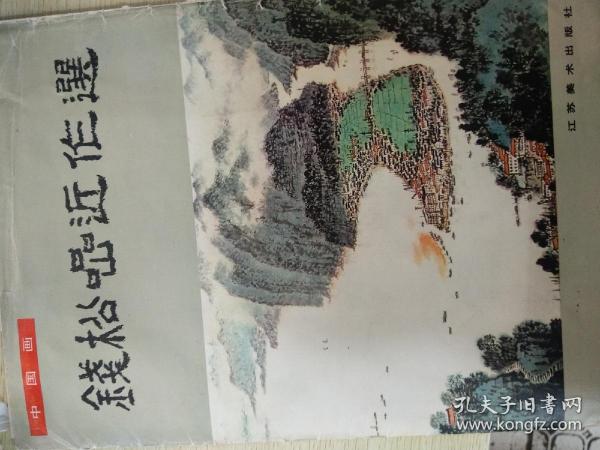 中国画
錢松喦近作選
江苏美术出版社
孔夫子旧书网
www.kongfz.com